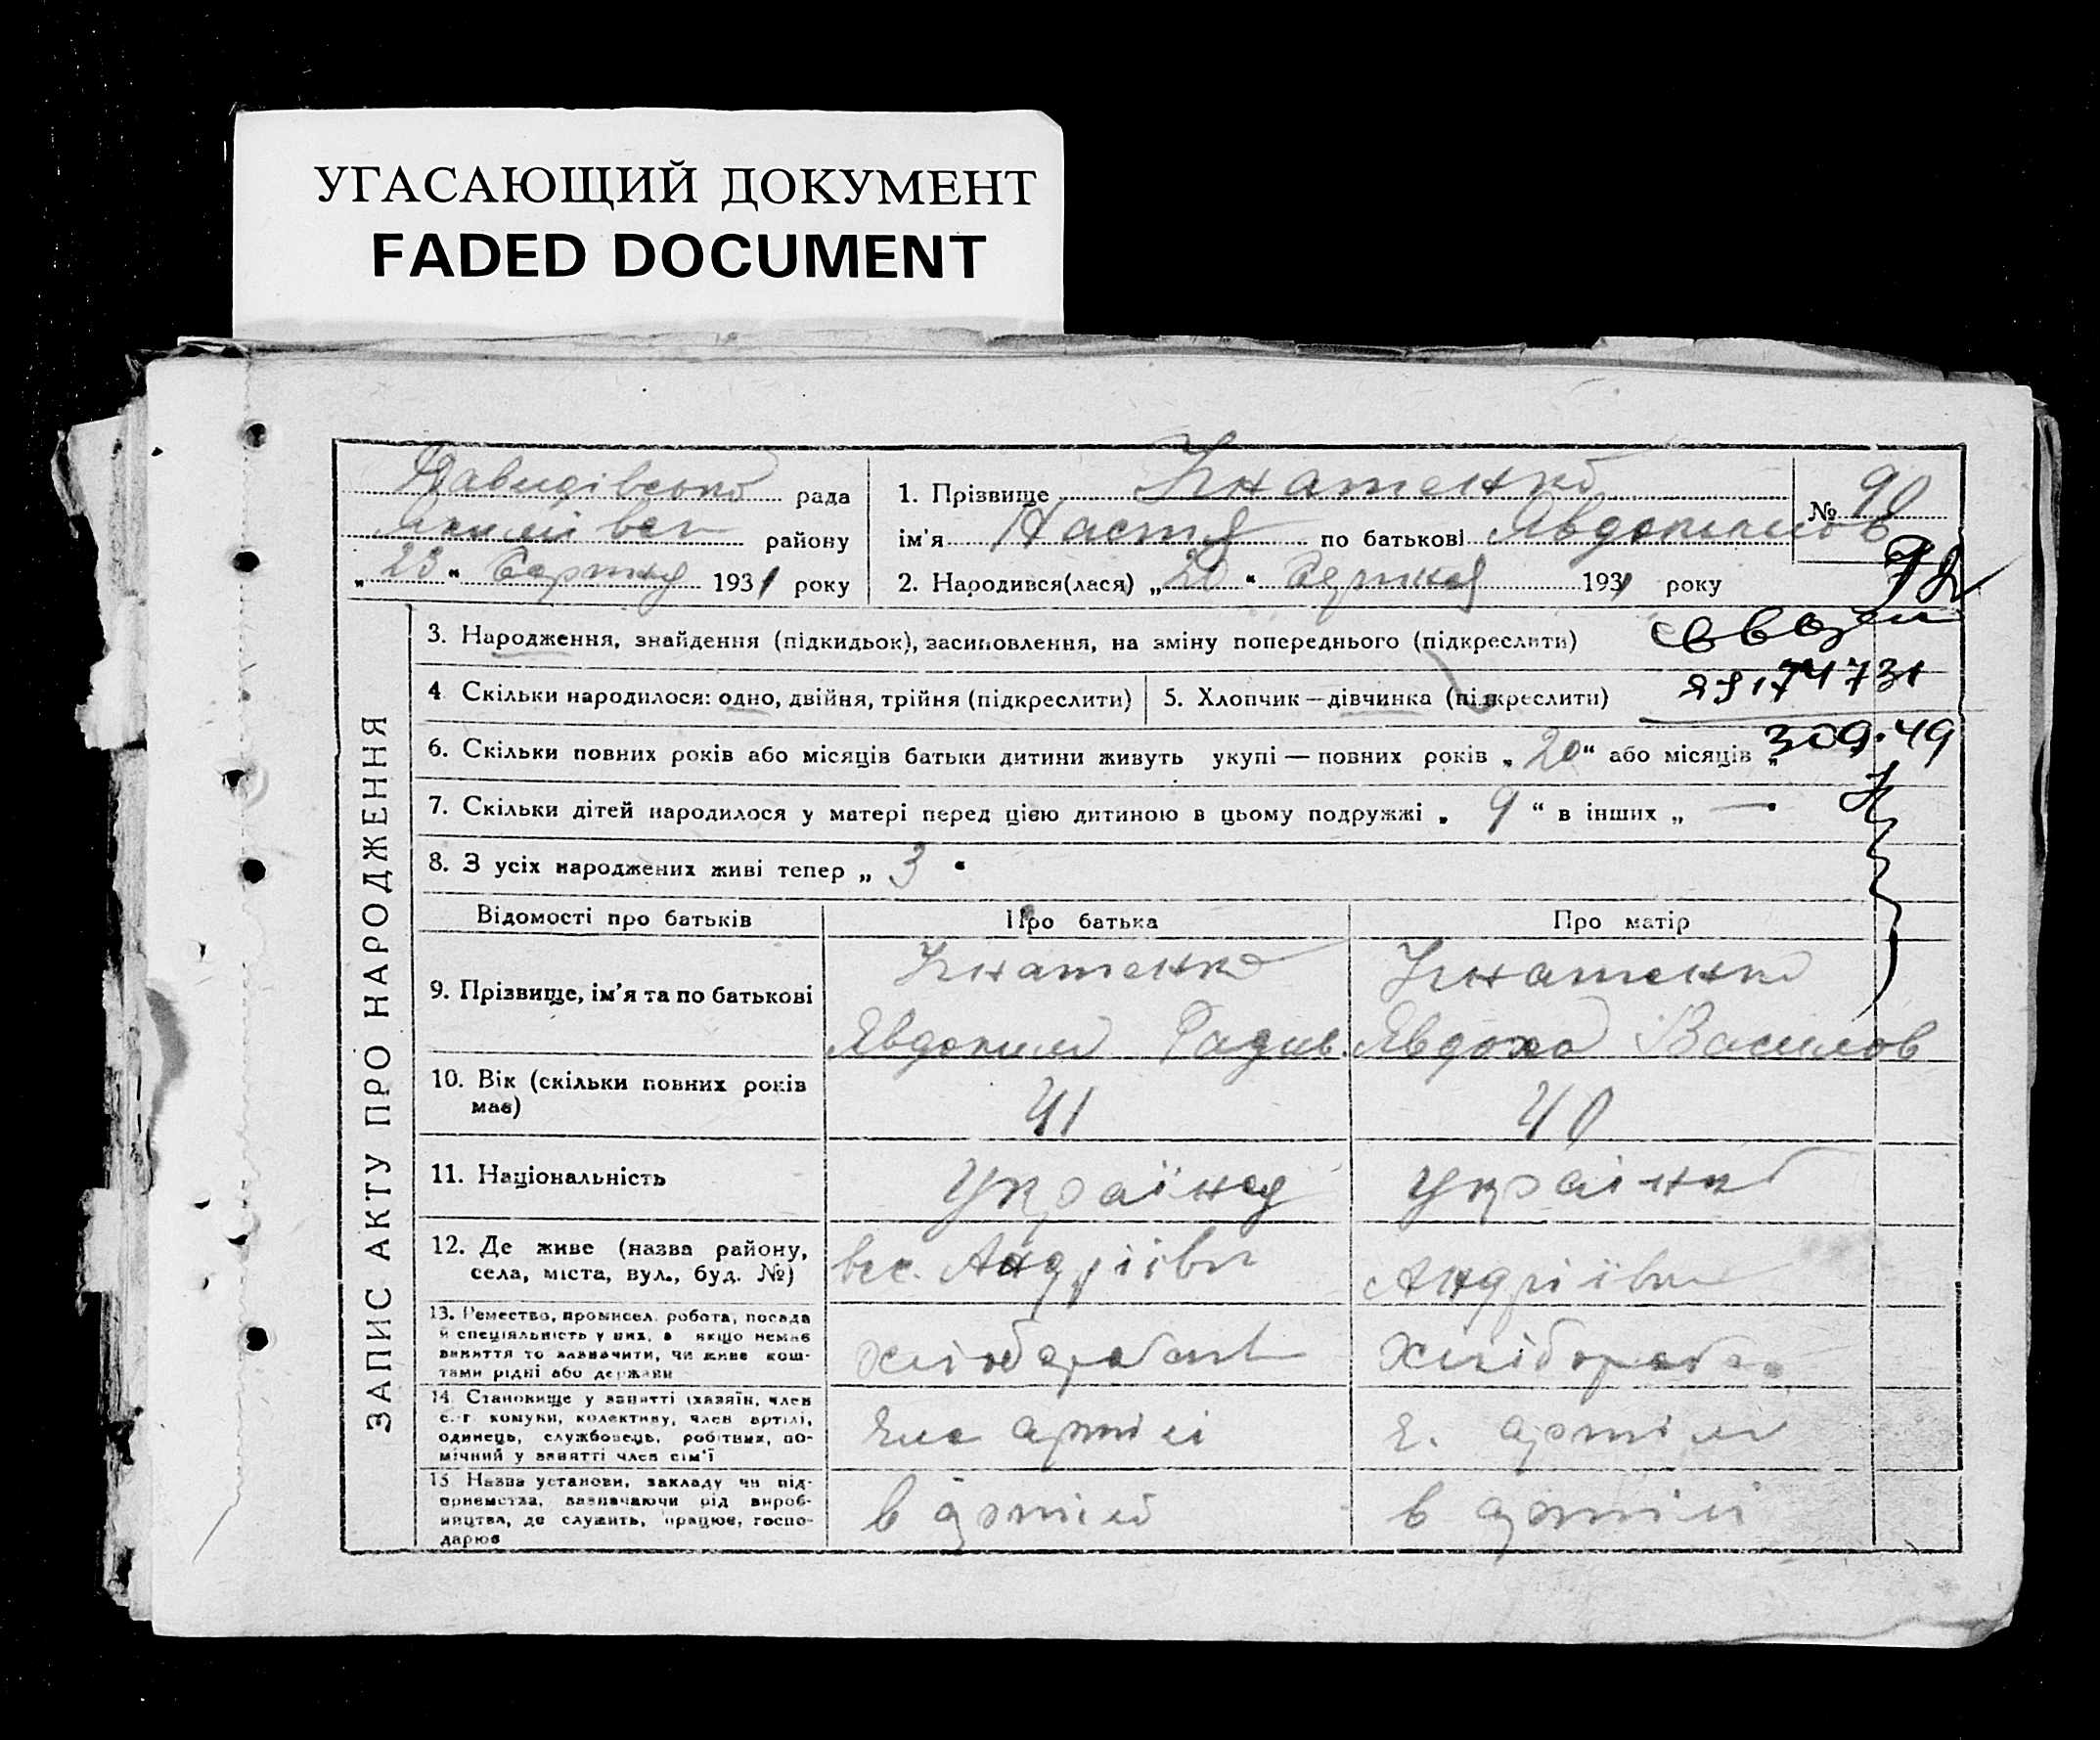 УГАСАЮЩИЙ ДОКУМЕНТ
FADED DOCUMENT
Давидівська рада
району
„23“ Серпня 1931 року
1. Прізвище Ігнатенко
№ 90
ім'я Настя по батькові Явдокимов
2. Народився(лася) „20“ Серпня 1931 року
ЗАПИС АКТУ ПРО НАРОДЖЕННЯ
3. Народження, знайдення (підкидьок), засиновлення, на зміну попереднього (підкреслити)
4 Скільки народилося: одно, двійня, трійня (підкреслити)
5. Хлопчик — дівчинка (підкреслити)
309.49
6. Скільки повних років або місяців батьки дитини живуть укупі — повних років „20“ або місяців „
7. Скільки дітей народилося у матері перед цією дитиною в цьому подружжі „ 9 “ в інших „ —
8. З усіх народжених живі тепер „ 3 “
Відомості про батьків Про батька Про матір
9. Прізвище, ім'я та по батькові
Ігнатенко Ігнатенко
Явдоким Радив. Явдоха Василов
10. Вік (скільки повних років має)
41 40
11. Національність
Українец Українка
12. Де живе (назва району, села, міста, вул., буд. №)
Андріївк Андріївк
13. Ремество, промисел, робота, посада
й спеціяльність у них, а якщо немає
заняття то зазначити, чи живе кош-
тами рідні або держави
хлібороб Хлібороб
14. Становище у занятті (хазяїн, член
с.-г. комуни, колективу, член артілі,
одинець, службовець, робітник, по-
мічний у занятті член сім'ї
артілі артілі
15. Назва установи, закладу чи під-
приємства, зазначаючи рід вироб-
ництва, де служить, працює, госпо-
дарює
в артілі в артілі